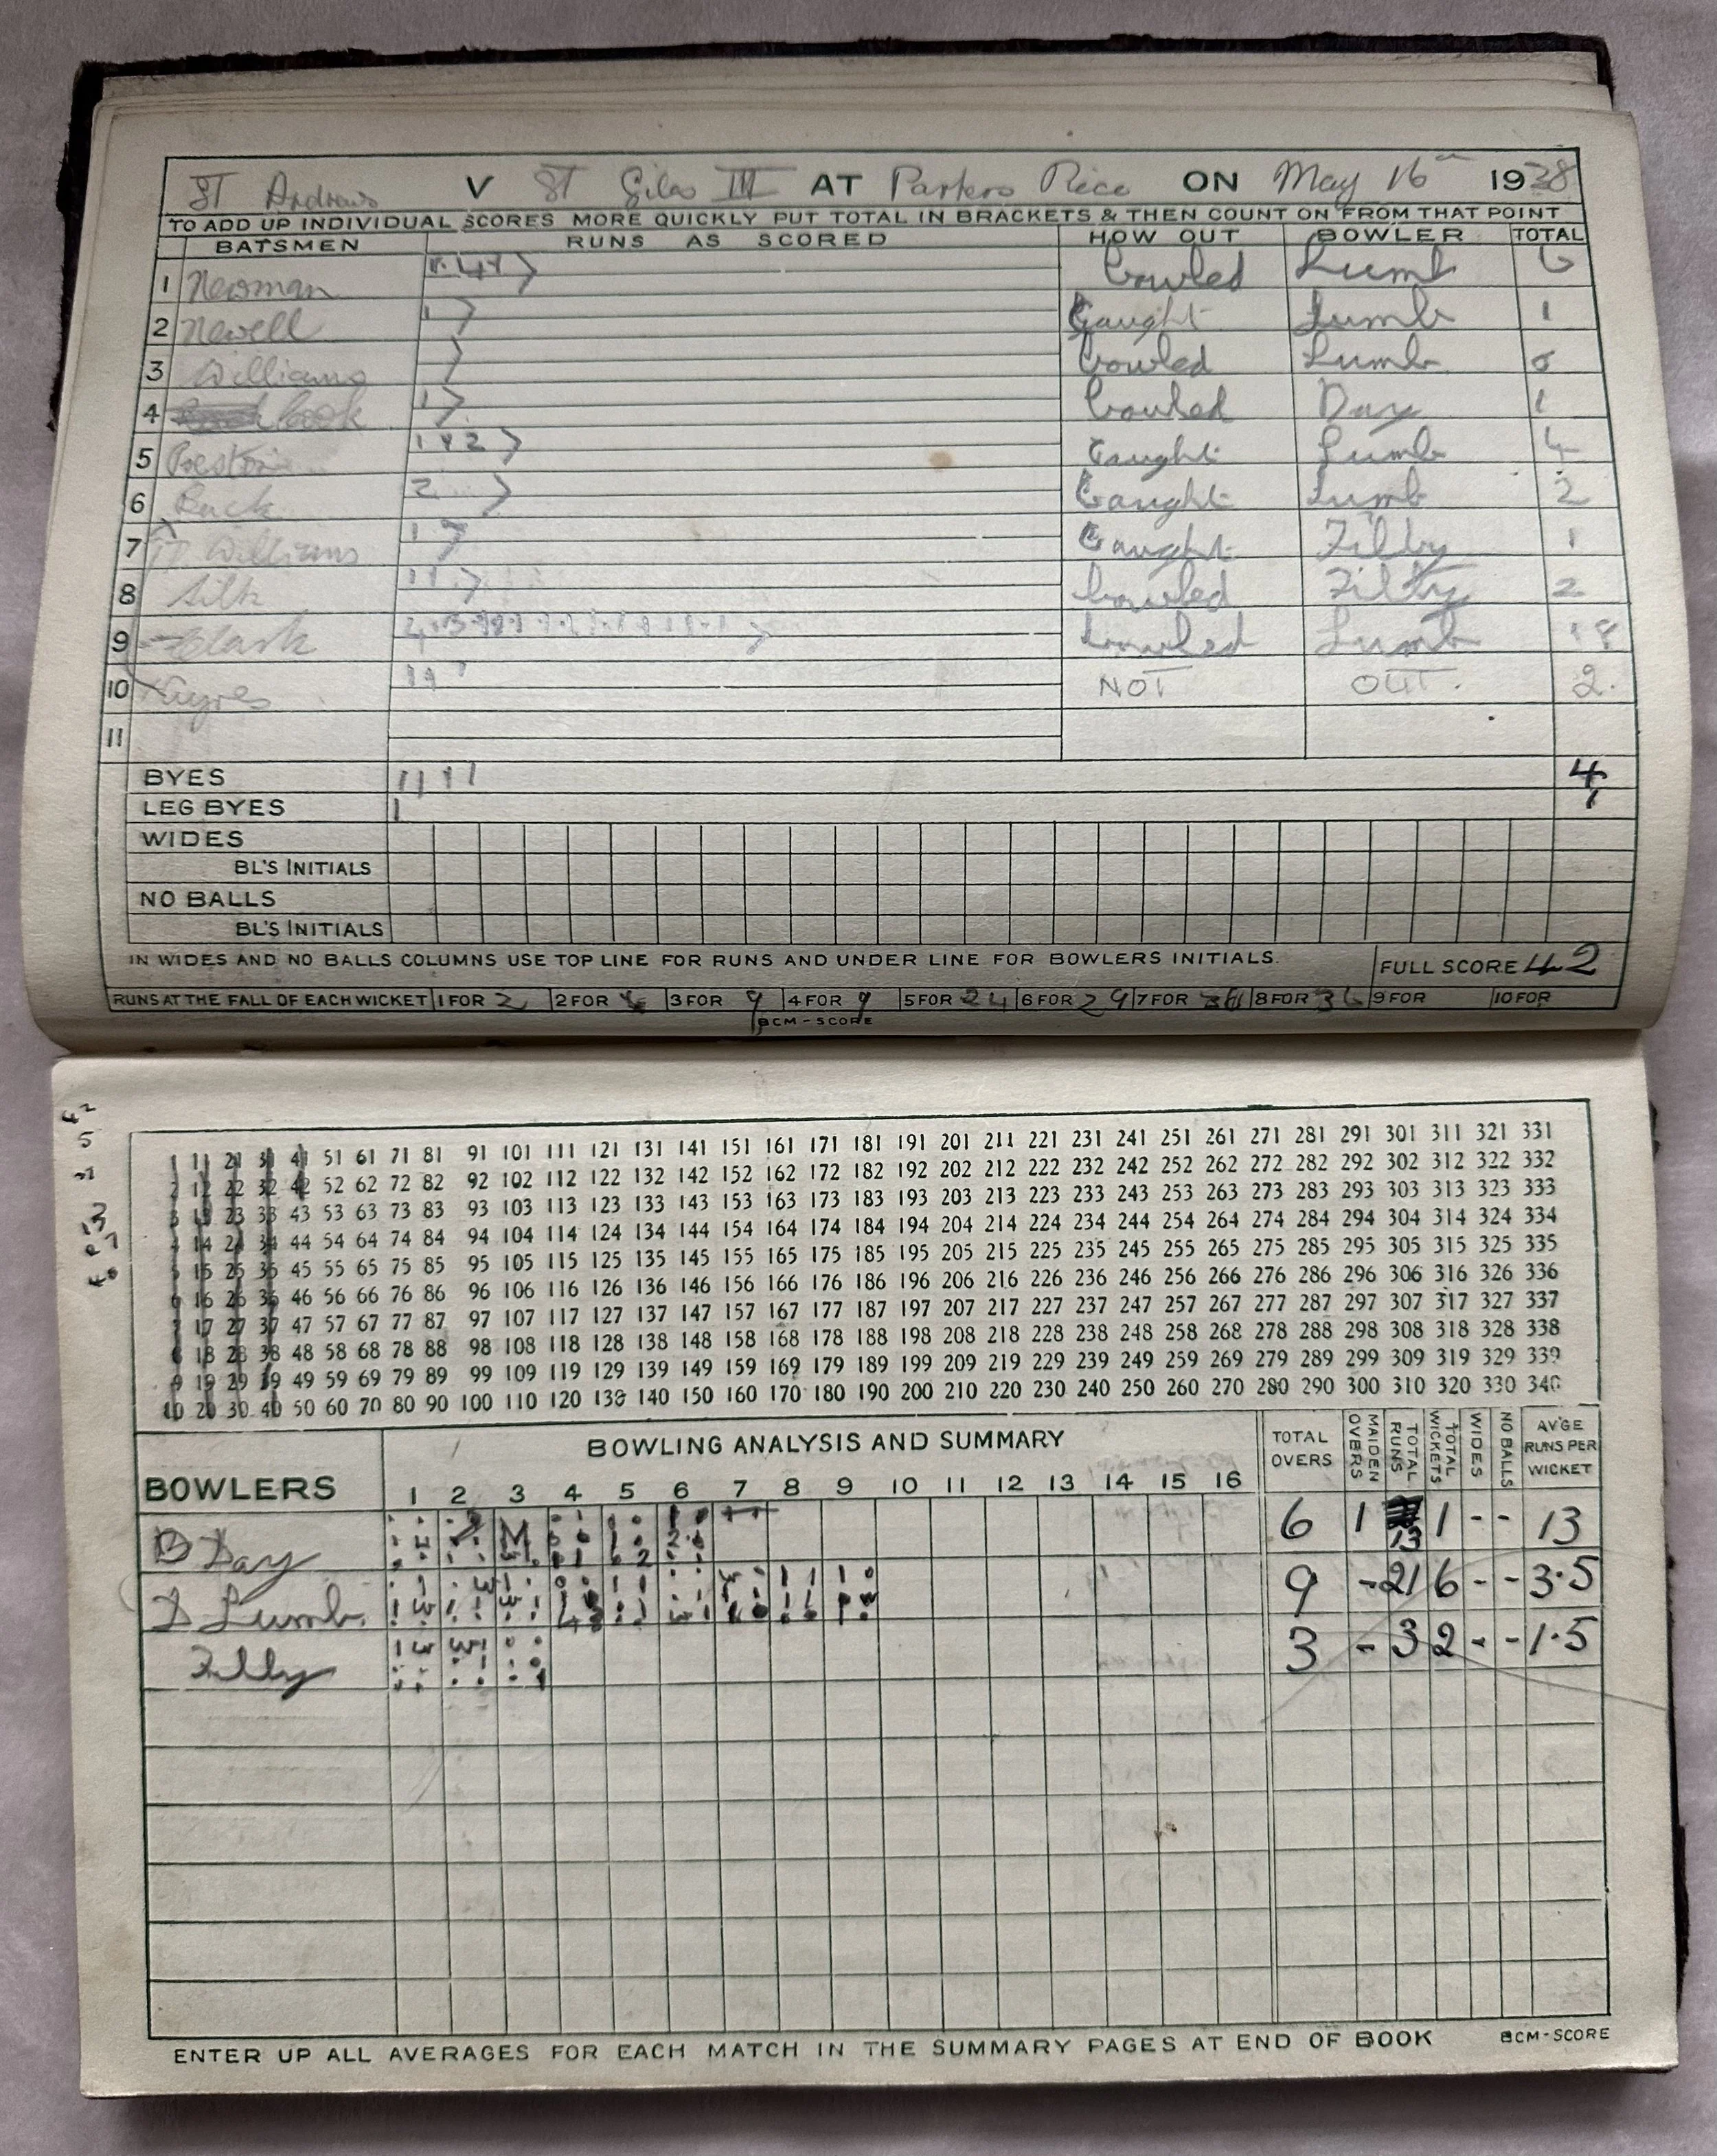 ST Andrews V ST Giles III AT Parkers Piece ON May 16th 1938
TO ADD UP INDIVIDUAL SCORES MORE QUICKLY PUT TOTAL IN BRACKETS & THEN COUNT ON FROM THAT POINT
BATSMEN RUNS AS SCORED HOW OUT BOWLER TOTAL
1 Newman bowled Lumb 6
2 Newell 1 Caught Lumb 1
3 Williams bowled Lumb 0
4 Cook 1 bowled Day 1
5 Preston 1 1 2 Caught Lumb 4
6 Buck 2 Caught Lumb 2
7 Williams 1 Caught Filby 1
8 Silk 1 1 bowled Filby 2
9 Clark bowled Lumb 18
10 Ayres 1 1 NOT OUT. 2.
11
BYES 1 1 1 1 4
LEG BYES 1 1
WIDES
BL'S INITIALS
NO BALLS
BL'S INITIALS
IN WIDES AND NO BALLS COLUMNS USE TOP LINE FOR RUNS AND UNDER LINE FOR BOWLERS INITIALS. FULL SCORE 42
RUNS AT THE FALL OF EACH WICKET 1 FOR 2 2 FOR 3 FOR 9 4 FOR 9 5 FOR 24 6 FOR 29 7 FOR 8 FOR 36 9 FOR 10 FOR
BCM-SCORE
42
5
1 11 21 31 41 51 61 71 81 91 101 111 121 131 141 151 161 171 181 191 201 211 221 231 241 251 261 271 281 291 301 311 321 331
2 12 22 32 42 52 62 72 82 92 102 112 122 132 142 152 162 172 182 192 202 212 222 232 242 252 262 272 282 292 302 312 322 332
3 13 23 33 43 53 63 73 83 93 103 113 123 133 143 153 163 173 183 193 203 213 223 233 243 253 263 273 283 293 303 313 323 333
4 14 24 34 44 54 64 74 84 94 104 114 124 134 144 154 164 174 184 194 204 214 224 234 244 254 264 274 284 294 304 314 324 334
5 15 25 35 45 55 65 75 85 95 105 115 125 135 145 155 165 175 185 195 205 215 225 235 245 255 265 275 285 295 305 315 325 335
6 16 26 36 46 56 66 76 86 96 106 116 126 136 146 156 166 176 186 196 206 216 226 236 246 256 266 276 286 296 306 316 326 336
7 17 27 37 47 57 67 77 87 97 107 117 127 137 147 157 167 177 187 197 207 217 227 237 247 257 267 277 287 297 307 317 327 337
8 18 28 38 48 58 68 78 88 98 108 118 128 138 148 158 168 178 188 198 208 218 228 238 248 258 268 278 288 298 308 318 328 338
9 19 29 39 49 59 69 79 89 99 109 119 129 139 149 159 169 179 189 199 209 219 229 239 249 259 269 279 289 299 309 319 329 339
10 20 30 40 50 60 70 80 90 100 110 120 130 140 150 160 170 180 190 200 210 220 230 240 250 260 270 280 290 300 310 320 330 340
BOWLERS BOWLING ANALYSIS AND SUMMARY TOTAL OVERS MAIDEN OVERS TOTAL RUNS TOTAL WICKETS WIDES NO BALLS AV'GE RUNS PER WICKET
1 2 3 4 5 6 7 8 9 10 11 12 13 14 15 16
B Day 6 1 13 1 - - 13
D Lumb. 9 - 21 6 - - 3.5
Filby 3 - 3 2 - - 1.5
ENTER UP ALL AVERAGES FOR EACH MATCH IN THE SUMMARY PAGES AT END OF BOOK BCM-SCORE